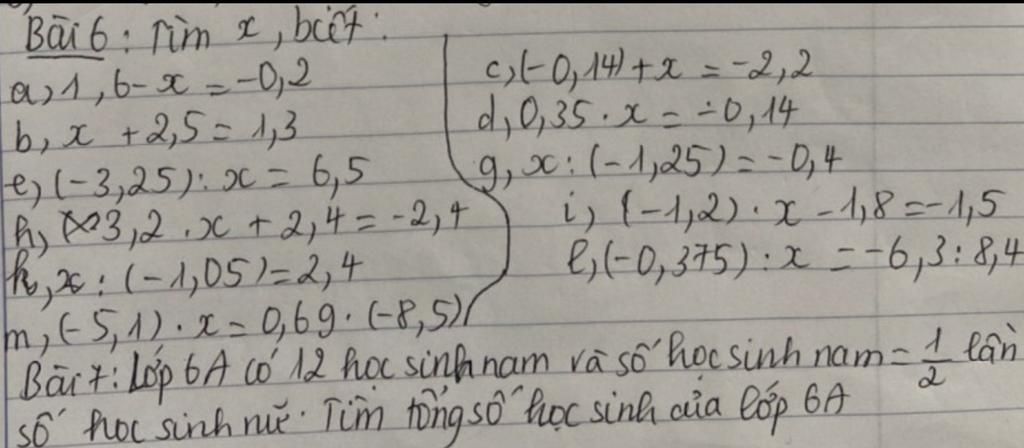 Bài 6: Tìm x, biết:
a, 1,6 - x = -0,2
b, x + 2,5 = 1,3
e, (-3,25) : x = 6,5
h, 3,2 . x + 2,4 = -2,4
k, x : (-1,05) = 2,4
m, (-5,1) . x = 0,69 . (-8,5)
c, (-0,14) + x = -2,2
d, 0,35 . x = -0,14
g, x : (-1,25) = -0,4
i, (-1,2) . x - 1,8 = -1,5
l, (-0,375) : x = -6,3 : 8,4
Bài 7: Lớp 6A có 12 học sinh nam và số học sinh nam = 1/2 lần
số học sinh nữ. Tìm tổng số học sinh của lớp 6A